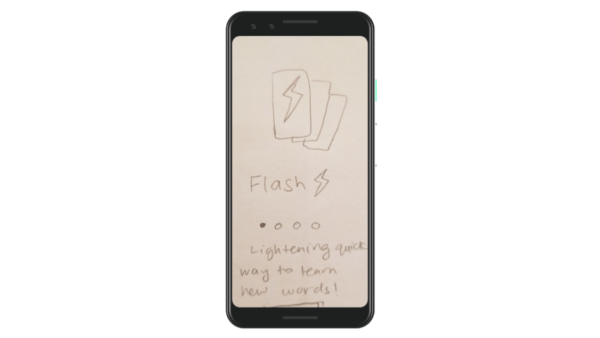 Flash
Lightening quick
way to learn
new words!